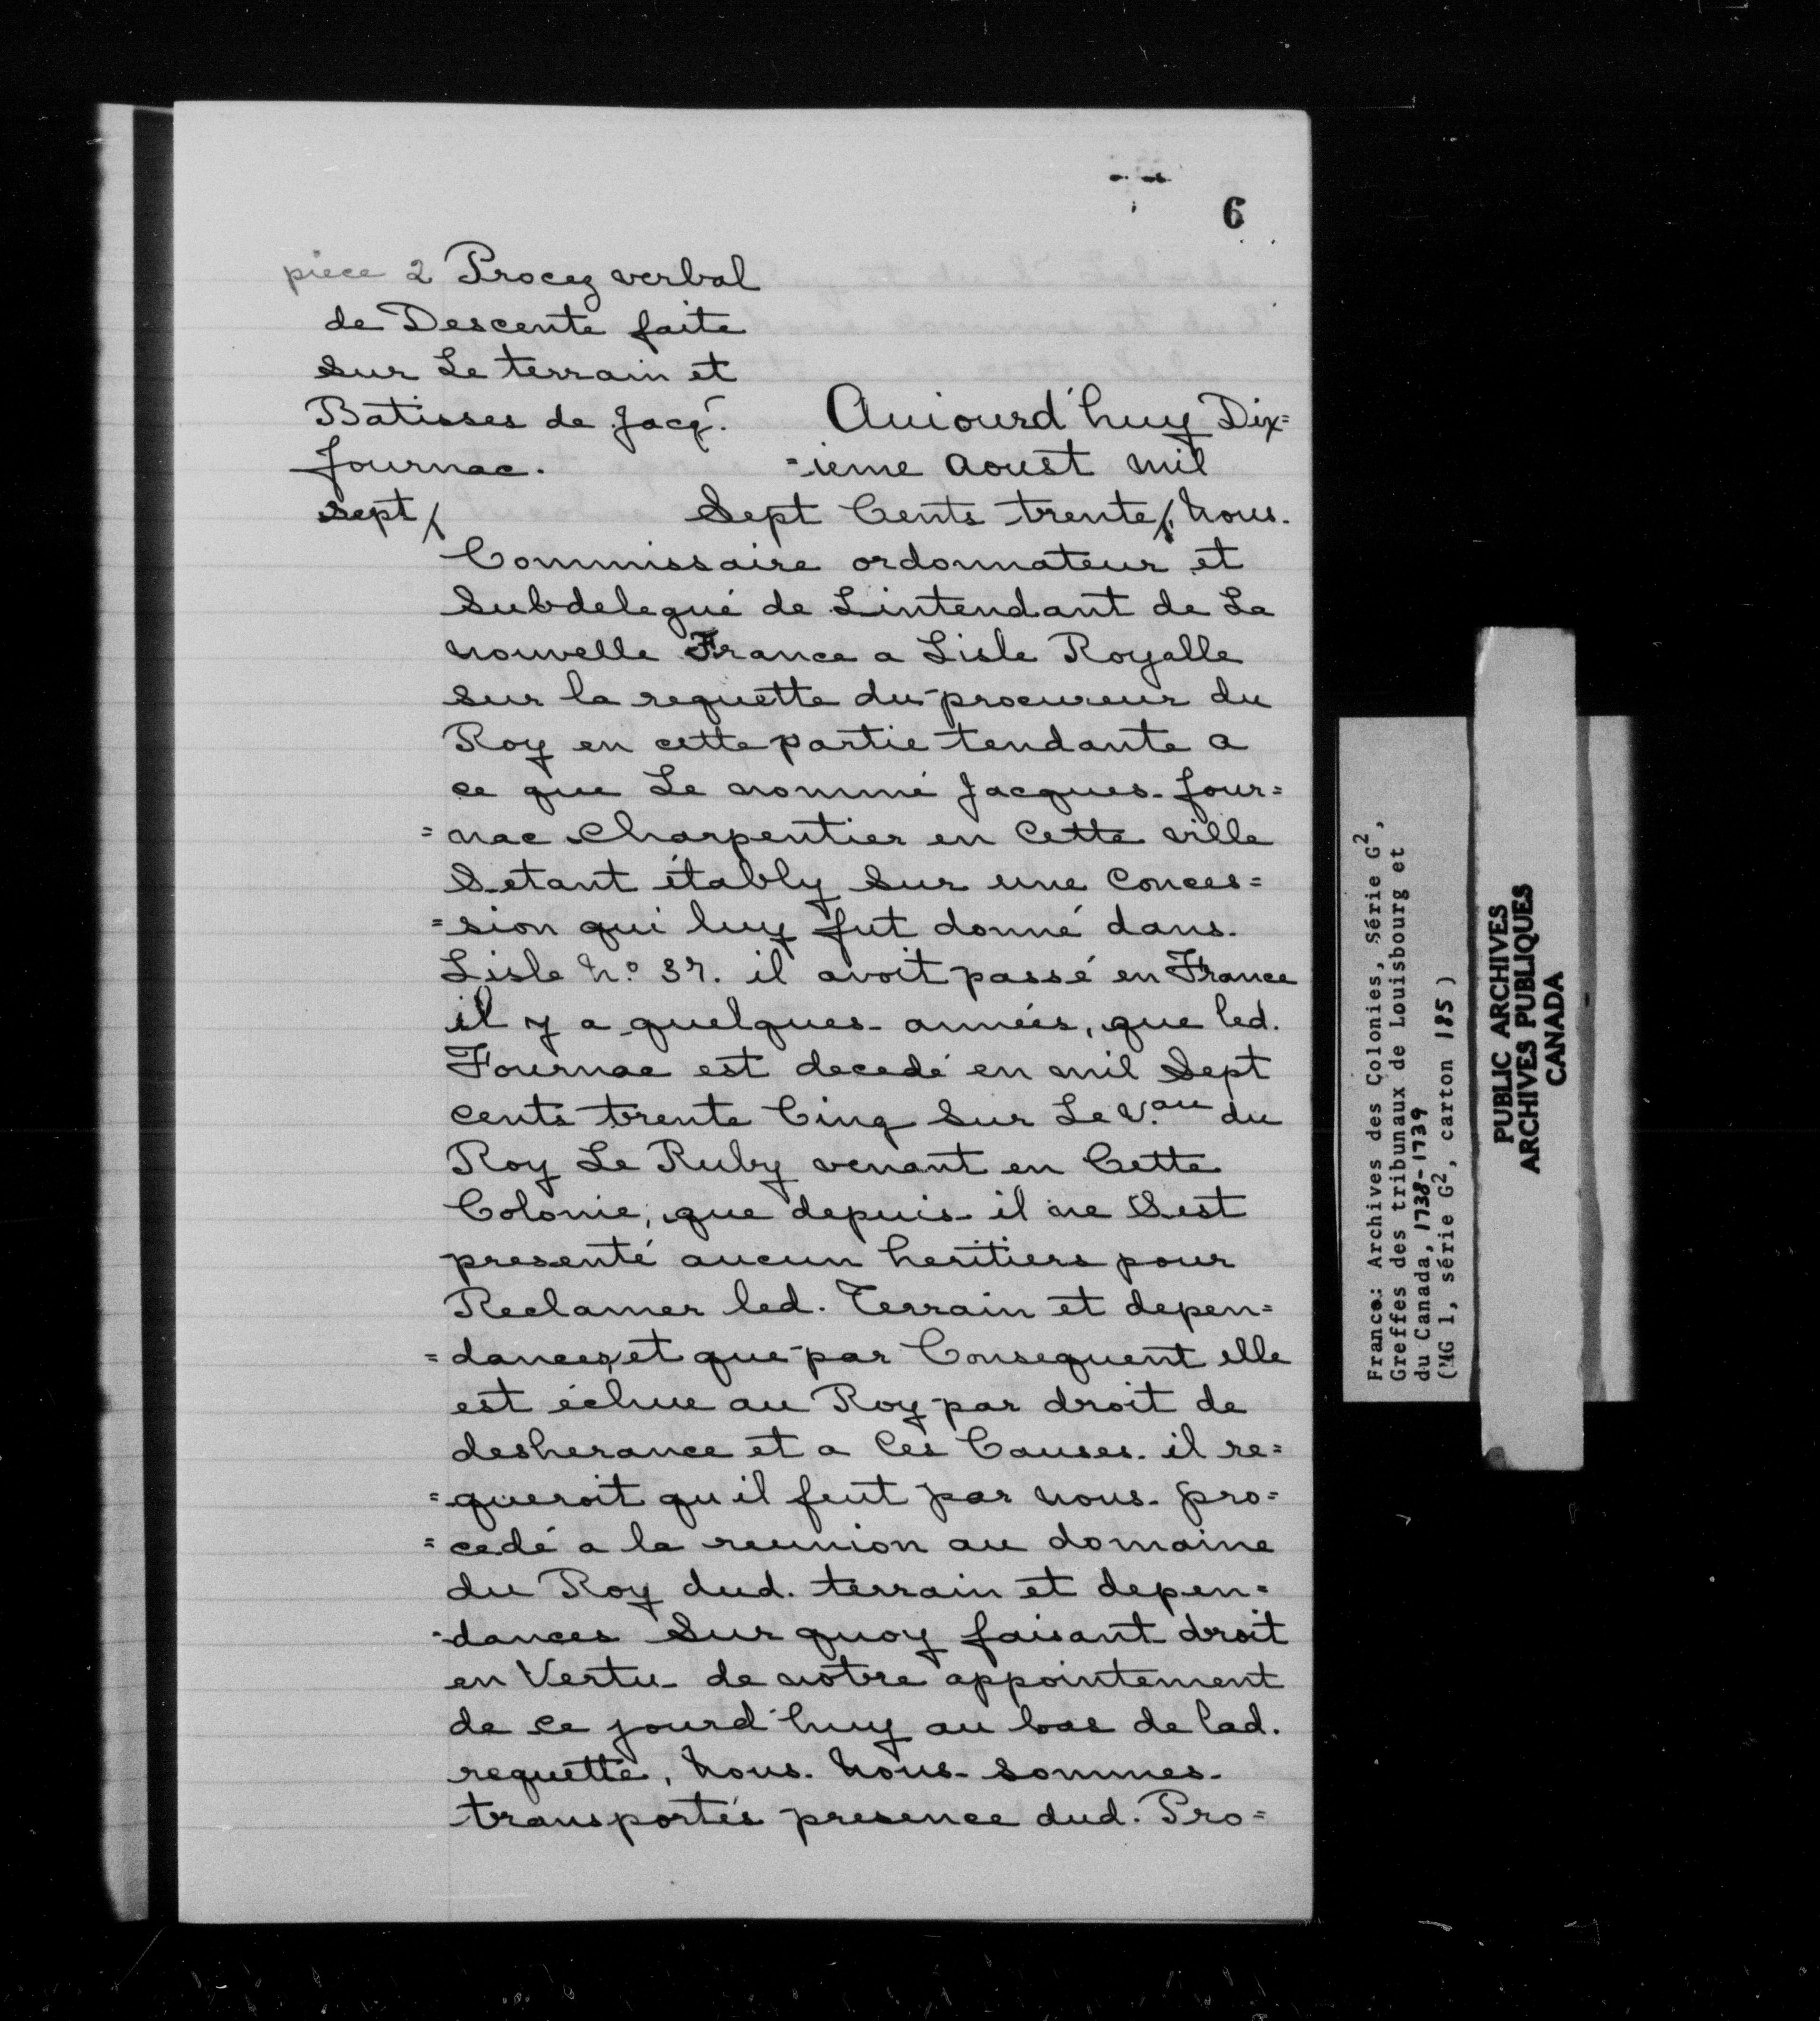 6
pièce 2 Procez verbal
de Descente faite
sur Le terrain et
Batisses de Jacq.
fournac.
sept /
Auiourd'huy Dix=
=ieme Aoust mil
Sept Cents trente /. Nous
Commissaire ordonnateur et
Subdelegué de Lintendant de La
nouvelle France a Lisle Royalle
sur la requette du procureur du
Roy en cette partie tendante a
ce que Le nommé Jacques four=
=nac Charpentier en Cette ville
Setant étably Sur une Conces=
=sion qui luy fut donné dans
Lisle N.o 37. il avoit passé en France
il y a quelques années, que led.
Fournac est decedé en mil Sept
cents trente Cinq Sur Le V.au du
Roy Le Ruby venant en Cette
Colonie, que depuis il ne Sest
presenté aucun heritiers pour
Reclamer led. Terrain et depen=
=dances, et que par Consequent elle
est échue au Roy par droit de
desherance et a Ces Causes il re=
=queroit qu il feut par nous pro=
=cedé a la reunion au domaine
du Roy dud. terrain et depen=
=dances Sur quoy faisant droit
en Vertu de notre appointement
de ce jourd'huy au bas de lad.
requette, Nous Nous sommes
transportés presence dud. Pro=
France: Archives des Colonies, Série G2,
Greffes des tribunaux de Louisbourg et
du Canada, 1738-1739
(MG 1, série G2, carton 185)
PUBLIC ARCHIVES
ARCHIVES PUBLIQUES
CANADA